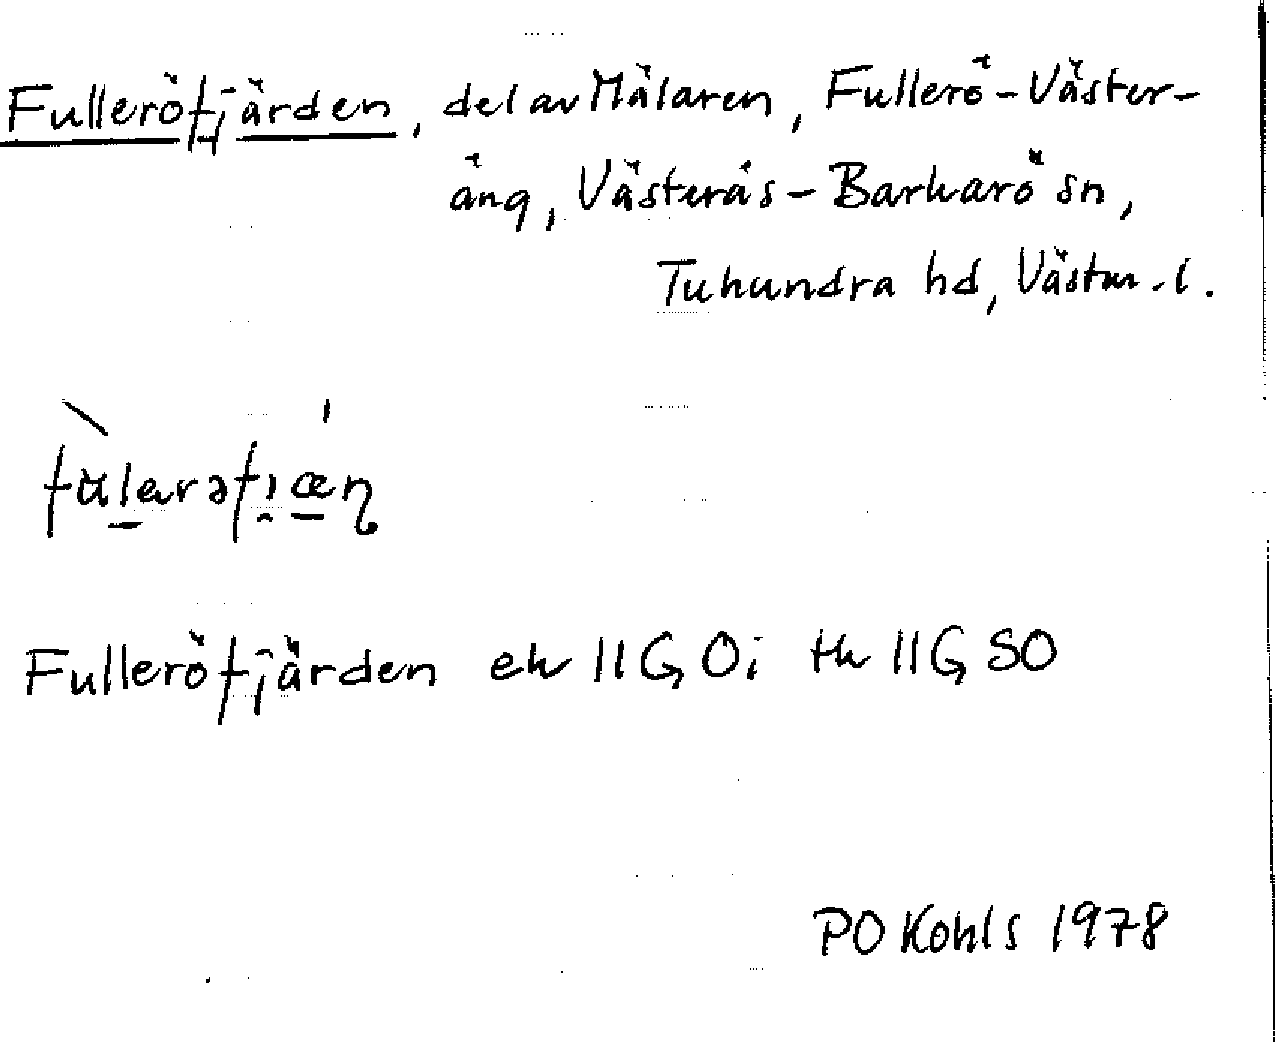 Fulleröfjärden, del av Mälaren, Fullerö-Väster-
äng, Västerås-Barkarö sn,
Tuhundra hd, Västm. l.
Fulleröfjärden ek 11G 0i th 11G SO
PO Kohls 1978